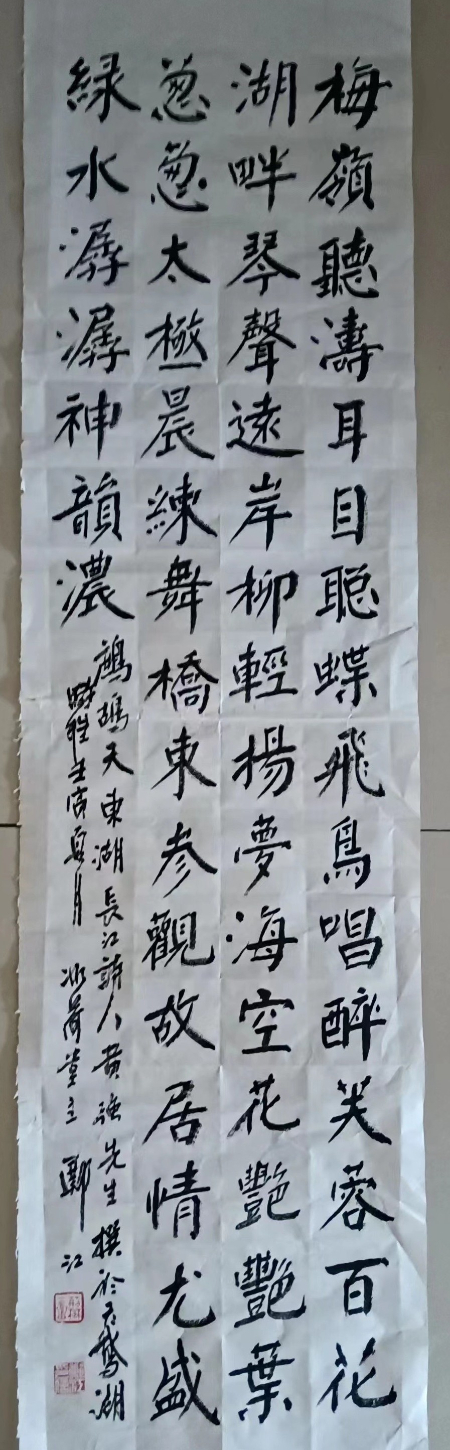 梅嶺聽濤耳目聪蝶飛鳥唱醉芙蓉百花
湖畔琴聲遠岸柳輕楊夢海空花艷艷葉
葱葱太極晨練舞橋東參觀故居情尤盛
緑水潺潺神韻濃
鷓鴣天東湖長江詩人黄強先生撰於天鵝湖
時維壬寅夏月冰荷堂主鄭江